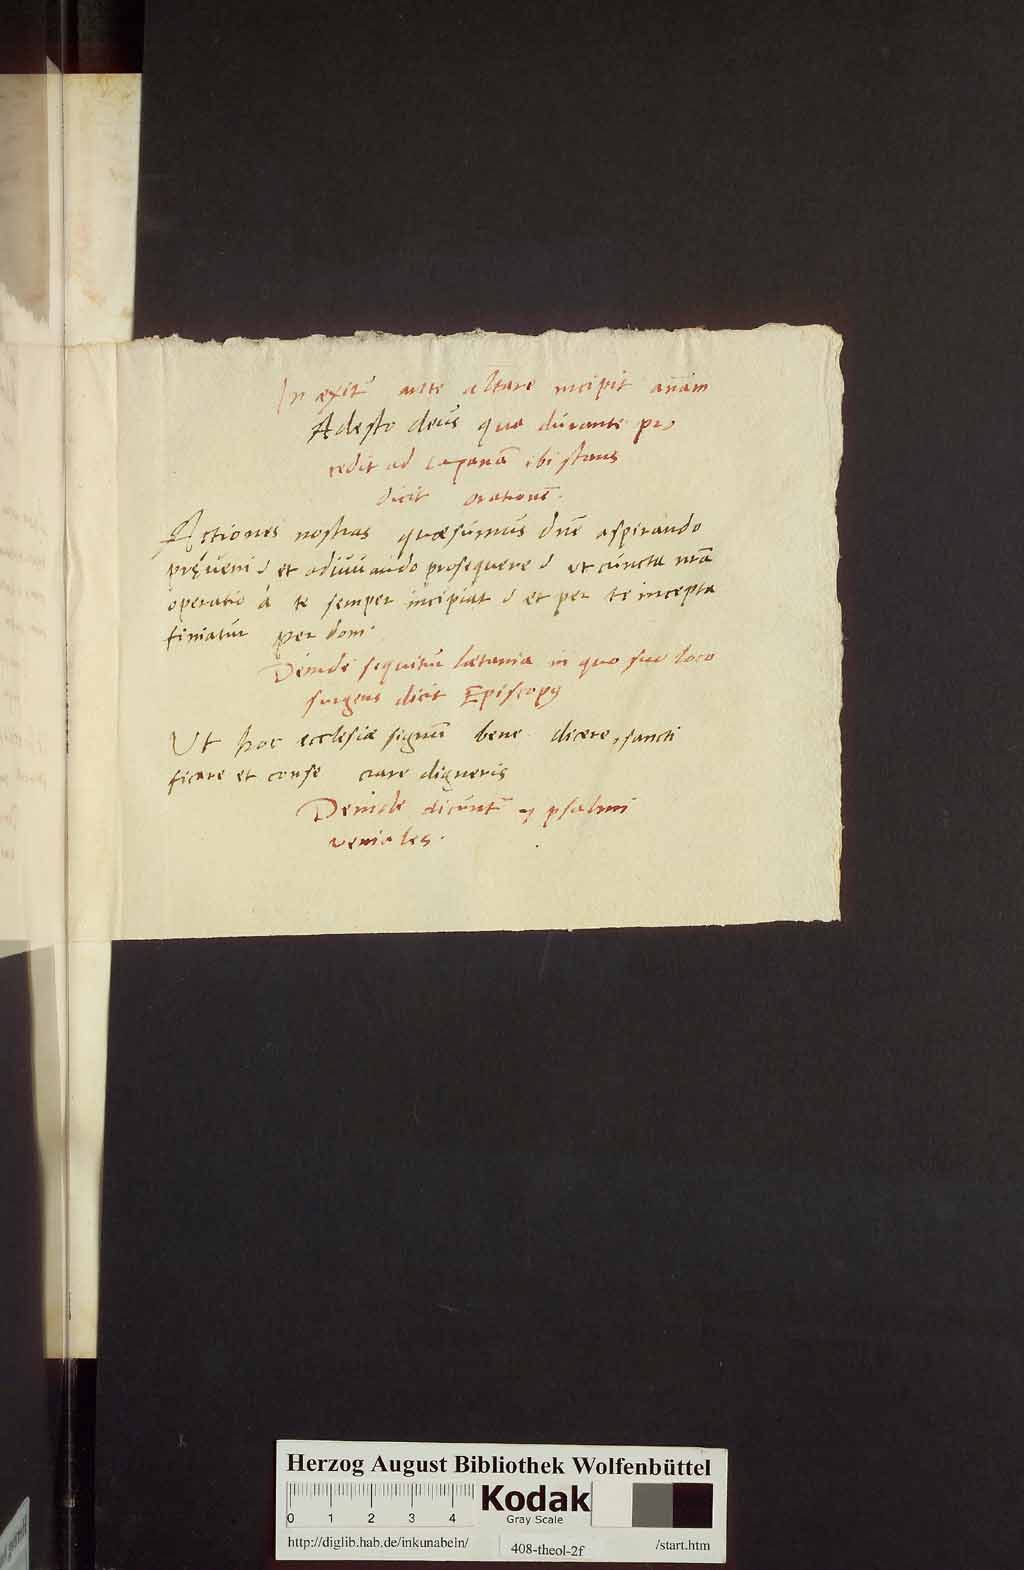 In exitū ante altare incipit an̄am
Adesto deus qua durante pro
cedit ad capanā ibi stans
dicit orationē.
Actiones nostras quæsumus dn̄e aspirando
præveni et adiuuando prosequere et cuncta nr̄a
operatio à te semper incipiat et per te incepta
finiatur per dom.
Deinde sequitur lætania in quo suo loco
surgens dicit Episcopꝯ
Ut hoc ecclesiæ signū bene dicere, sancti
ficare et conse crare digneris
Deinde dicunt psalmi
veniales.
Herzog August Bibliothek Wolfenbüttel
0 1 2 3 4
Kodak
Gray Scale
http://diglib.hab.de/inkunabeln/ 408-theol-2f /start.htm